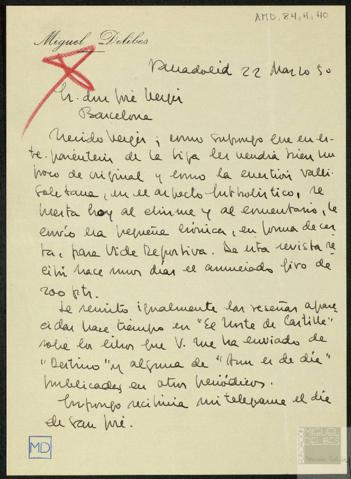 AMD, 84, 4, 40
Miguel Delibes
Valladolid 22 Marzo 50
Sr. don José Vergés
Barcelona
Querido Vergés; como supongo que en es-
te paréntesis de la liga les vendrá bien un
poco de original y como la cuestión valli-
soletana, en el aspecto futbolístico, se
presta hoy al chisme y al comentario, le
envío una pequeña crónica, en forma de car-
ta, para Vida Deportiva. De esta revista re-
cibí hace unos días el anunciado giro de
200 pts.
Le remito igualmente las reseñas apare-
cidas hace tiempo en "El Norte de Castilla"
sobre los libros que V. me ha enviado de
"Destino" y alguna de "Aún es de día"
publicadas en otros periódicos.
Supongo recibiría mi telegrama el día
de San José.
MD